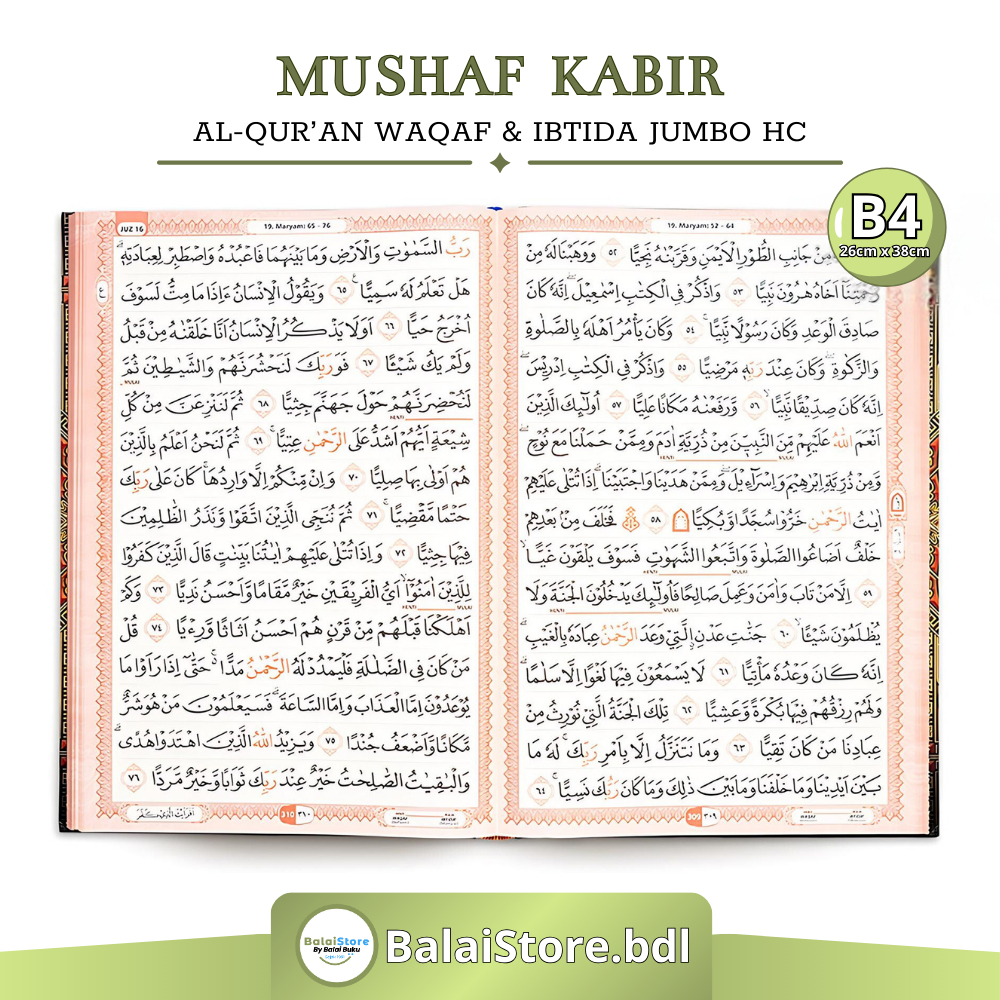 MUSHAF KABIR
AL-QUR’AN WAQAF & IBTIDA JUMBO HC
B4
26cm x 38cm
19. Maryam: 52 - 64
مِنْ جَانِبِ الطُّوْرِ الْاَيْمَنِ وَقَرَّبْنٰهُ نَجِيًّا ٥٢ وَوَهَبْنَا لَهٗ مِنْ
اَخَاهُ هٰرُوْنَ نَبِيًّا ٥٣ وَاذْكُرْ فِى الْكِتٰبِ اِسْمٰعِيْلَ اِنَّهٗ كَانَ
صَادِقَ الْوَعْدِ وَكَانَ رَسُوْلًا نَّبِيًّا ۚ ٥٤ وَكَانَ يَأْمُرُ اَهْلَهٗ بِالصَّلٰوةِ
وَالزَّكٰوةِ ۖ وَكَانَ عِنْدَ رَبِّهٖ مَرْضِيًّا ٥٥ وَاذْكُرْ فِى الْكِتٰبِ اِدْرِيْسَ ۖ
اِنَّهٗ كَانَ صِدِّيْقًا نَّبِيًّا ۙ ٥٦ وَّرَفَعْنٰهُ مَكَانًا عَلِيًّا ٥٧ اُولٰۤىِٕكَ الَّذِيْنَ
اَنْعَمَ اللّٰهُ عَلَيْهِمْ مِّنَ النَّبِيّٖنَ مِنْ ذُرِّيَّةِ اٰدَمَ وَمِمَّنْ حَمَلْنَا مَعَ نُوْحٍ ۖ
وَّمِنْ ذُرِّيَّةِ اِبْرٰهِيْمَ وَاِسْرَاۤءِيْلَ ۖ وَمِمَّنْ هَدَيْنَا وَاجْتَبَيْنَا ۗ اِذَا تُتْلٰى عَلَيْهِمْ
اٰيٰتُ الرَّحْمٰنِ خَرُّوْا سُجَّدًا وَّبُكِيًّا ۩ ٥٨ ۞ فَخَلَفَ مِنْۢ بَعْدِهِمْ
خَلْفٌ اَضَاعُوا الصَّلٰوةَ وَاتَّبَعُوا الشَّهَوٰتِ فَسَوْفَ يَلْقَوْنَ غَيًّا ۙ
٥٩ اِلَّا مَنْ تَابَ وَاٰمَنَ وَعَمِلَ صَالِحًا فَاُولٰۤىِٕكَ يَدْخُلُوْنَ الْجَنَّةَ وَلَا
يُظْلَمُوْنَ شَيْـًٔا ۙ ٦٠ جَنّٰتِ عَدْنِ ۨالَّتِيْ وَعَدَ الرَّحْمٰنُ عِبَادَهٗ بِالْغَيْبِ ۗ
اِنَّهٗ كَانَ وَعْدُهٗ مَأْتِيًّا ٦١ لَا يَسْمَعُوْنَ فِيْهَا لَغْوًا اِلَّا سَلٰمًا ۗ
وَلَهُمْ رِزْقُهُمْ فِيْهَا بُكْرَةً وَّعَشِيًّا ٦٢ تِلْكَ الْجَنَّةُ الَّتِيْ نُوْرِثُ مِنْ
عِبَادِنَا مَنْ كَانَ تَقِيًّا ٦٣ وَمَا نَتَنَزَّلُ اِلَّا بِاَمْرِ رَبِّكَ ۚ لَهٗ مَا
بَيْنَ اَيْدِيْنَا وَمَا خَلْفَنَا وَمَا بَيْنَ ذٰلِكَ وَمَا كَانَ رَبُّكَ نَسِيًّا ۚ ٦٤
309 ٣٠٩
JUZ 16
19. Maryam: 65 - 76
رَبُّ السَّمٰوٰتِ وَالْاَرْضِ وَمَا بَيْنَهُمَا فَاعْبُدْهُ وَاصْطَبِرْ لِعِبَادَتِهٖ ۗ
هَلْ تَعْلَمُ لَهٗ سَمِيًّا ࣖ ٦٥ وَيَقُوْلُ الْاِنْسَانُ ءَاِذَا مَا مِتُّ لَسَوْفَ
اُخْرَجُ حَيًّا ٦٦ اَوَلَا يَذْكُرُ الْاِنْسَانُ اَنَّا خَلَقْنٰهُ مِنْ قَبْلُ
وَلَمْ يَكُ شَيْـًٔا ٦٧ فَوَرَبِّكَ لَنَحْشُرَنَّهُمْ وَالشَّيٰطِيْنَ ثُمَّ
لَنُحْضِرَنَّهُمْ حَوْلَ جَهَنَّمَ جِثِيًّا ٦٨ ثُمَّ لَنَنْزِعَنَّ مِنْ كُلِّ
شِيْعَةٍ اَيُّهُمْ اَشَدُّ عَلَى الرَّحْمٰنِ عِتِيًّا ۚ ٦٩ ثُمَّ لَنَحْنُ اَعْلَمُ بِالَّذِيْنَ
هُمْ اَوْلٰى بِهَا صِلِيًّا ٧٠ وَاِنْ مِّنْكُمْ اِلَّا وَارِدُهَا ۚ كَانَ عَلٰى رَبِّكَ
حَتْمًا مَّقْضِيًّا ۚ ٧١ ثُمَّ نُنَجِّى الَّذِيْنَ اتَّقَوْا وَّنَذَرُ الظّٰلِمِيْنَ
فِيْهَا جِثِيًّا ٧٢ وَاِذَا تُتْلٰى عَلَيْهِمْ اٰيٰتُنَا بَيِّنٰتٍ قَالَ الَّذِيْنَ كَفَرُوْا
لِلَّذِيْنَ اٰمَنُوْٓا ۙ اَيُّ الْفَرِيْقَيْنِ خَيْرٌ مَّقَامًا وَّاَحْسَنُ نَدِيًّا ٧٣ وَكَمْ
اَهْلَكْنَا قَبْلَهُمْ مِّنْ قَرْنٍ هُمْ اَحْسَنُ اَثَاثًا وَّرِءْيًا ٧٤ قُلْ
مَنْ كَانَ فِى الضَّلٰلَةِ فَلْيَمْدُدْ لَهُ الرَّحْمٰنُ مَدًّا ۚ حَتّٰىٓ اِذَا رَاَوْا مَا
يُوْعَدُوْنَ اِمَّا الْعَذَابَ وَاِمَّا السَّاعَةَ ۗ فَسَيَعْلَمُوْنَ مَنْ هُوَ شَرٌّ
مَّكَانًا وَّاَضْعَفُ جُنْدًا ٧٥ وَيَزِيْدُ اللّٰهُ الَّذِيْنَ اهْتَدَوْا هُدًى ۗ
وَالْبٰقِيٰتُ الصّٰلِحٰتُ خَيْرٌ عِنْدَ رَبِّكَ ثَوَابًا وَّخَيْرٌ مَّرَدًّا ٧٦
310 ٣١٠
BalaiStore
By Balai Buku
BalaiStore.bdl